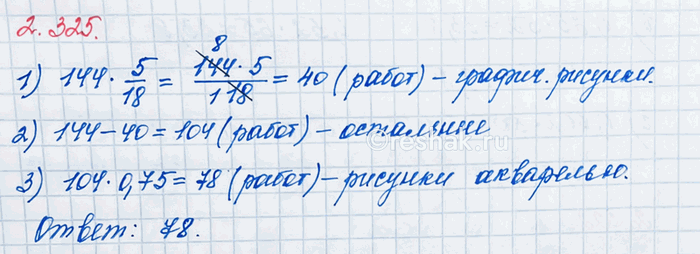 2.325.
1) 144 · 5/18 = 144 · 5 / 18 = 40 (работ) – графич. рисунки.
8
1
2) 144 – 40 = 104 (работ) – остальные
reshak.ru
3) 104 · 0,75 = 78 (работ) – рисунки акварелью.
Ответ: 78.